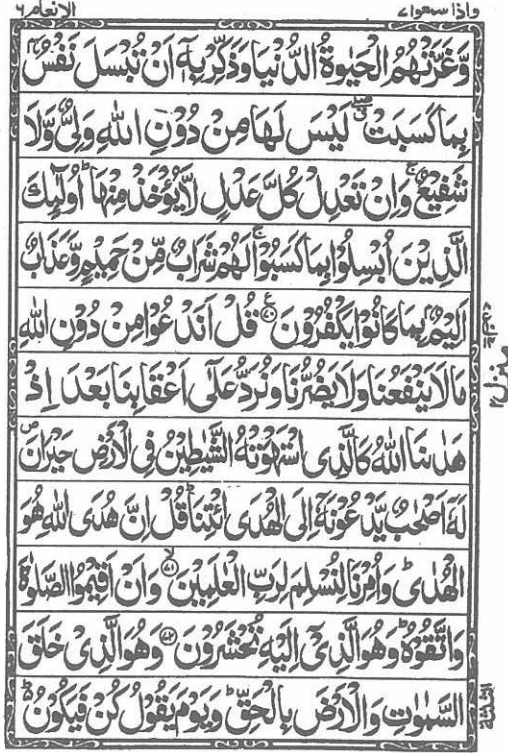 واذا سمعوا ٧
الانعام ٦
وَّغَرَّتْهُمُ الْحَيٰوةُ الدُّنْيَا وَذَكِّرْ بِهٖٓ اَنْ تُبْسَلَ نَفْسٌۢ
بِمَا كَسَبَتْ ۖ لَيْسَ لَهَا مِنْ دُوْنِ اللّٰهِ وَلِيٌّ وَّلَا
شَفِيْعٌ ۚ وَاِنْ تَعْدِلْ كُلَّ عَدْلٍ لَّا يُؤْخَذْ مِنْهَا ؕ اُولٰٓئِكَ
الَّذِيْنَ اُبْسِلُوْا بِمَا كَسَبُوْا ۚ لَهُمْ شَرَابٌ مِّنْ حَمِيْمٍ وَّعَذَابٌ
اَلِيْمٌۢ بِمَا كَانُوْا يَكْفُرُوْنَ ﴿٧٠﴾ قُلْ اَنَدْعُوْا مِنْ دُوْنِ اللّٰهِ
مَا لَا يَنْفَعُنَا وَلَا يَضُرُّنَا وَنُرَدُّ عَلٰٓى اَعْقَابِنَا بَعْدَ اِذْ
هَدٰىنَا اللّٰهُ كَالَّذِى اسْتَهْوَتْهُ الشَّيٰطِيْنُ فِى الْاَرْضِ حَيْرَانَ ۪
لَهٗٓ اَصْحٰبٌ يَّدْعُوْنَهٗٓ اِلَى الْهُدَى ائْتِنَا ؕ قُلْ اِنَّ هُدَى اللّٰهِ هُوَ
الْهُدٰى ؕ وَاُمِرْنَا لِنُسْلِمَ لِرَبِّ الْعٰلَمِيْنَ ﴿٧١﴾ وَاَنْ اَقِيْمُوا الصَّلٰوةَ
وَاتَّقُوْهُ ؕ وَهُوَ الَّذِيْٓ اِلَيْهِ تُحْشَرُوْنَ ﴿٧٢﴾ وَهُوَ الَّذِيْ خَلَقَ
السَّمٰوٰتِ وَالْاَرْضَ بِالْحَقِّ ؕ وَيَوْمَ يَقُوْلُ كُنْ فَيَكُوْنُ ؕ
منزل ٢
الثلثة